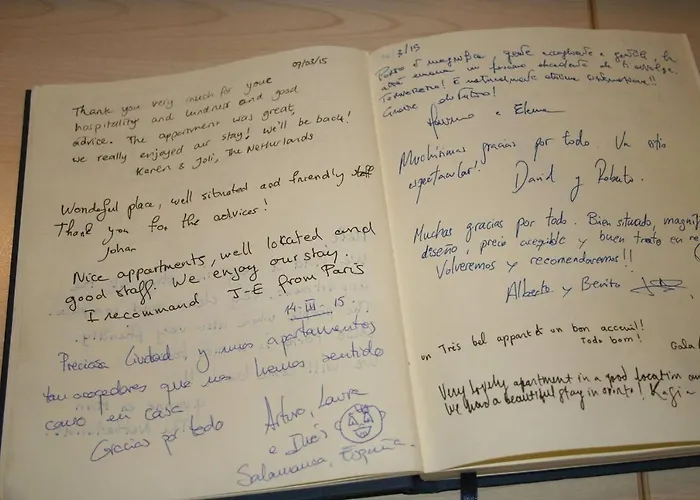 09/03/15
Thank you very much for your
hospitality and kindness and good
advice. The appartment was great,
we really enjoyed our stay! we'll be back!
Karen & Joli, The Netherlands
Wonderful place, well situated and friendly staff
Thank you for the advices!
Johan
Nice appartments, well located and
good staff. We enjoy our stay.
I recommand J-E from Paris
14-III-15
Preciosa Ciudad, y unos apartamentos
tan acogedores que nos hemos sentido
como en casa
Gracias por todo Arturo, Laura
e Inés
Salamanca, España.
3/15
Porto è magnifica, gente accogliente e gentile, la
città emana un fascino
Torneremo! E naturalmente ottima sistemazione!!
Grazie di tutto!
e Elena
Muchísimas gracias por todo. Un sitio
espectacular! David y Roberto.
Muchas gracias por todo. Bien situado,
diseño, precio asequible y buen trato en
Volveremos y recomendaremos!!
Alberto y Benito
un Très bel appart & un bon accueil!
Todo bom!
Very lovely apartment in a good location
we had a beautiful stay in Porto! Kasia